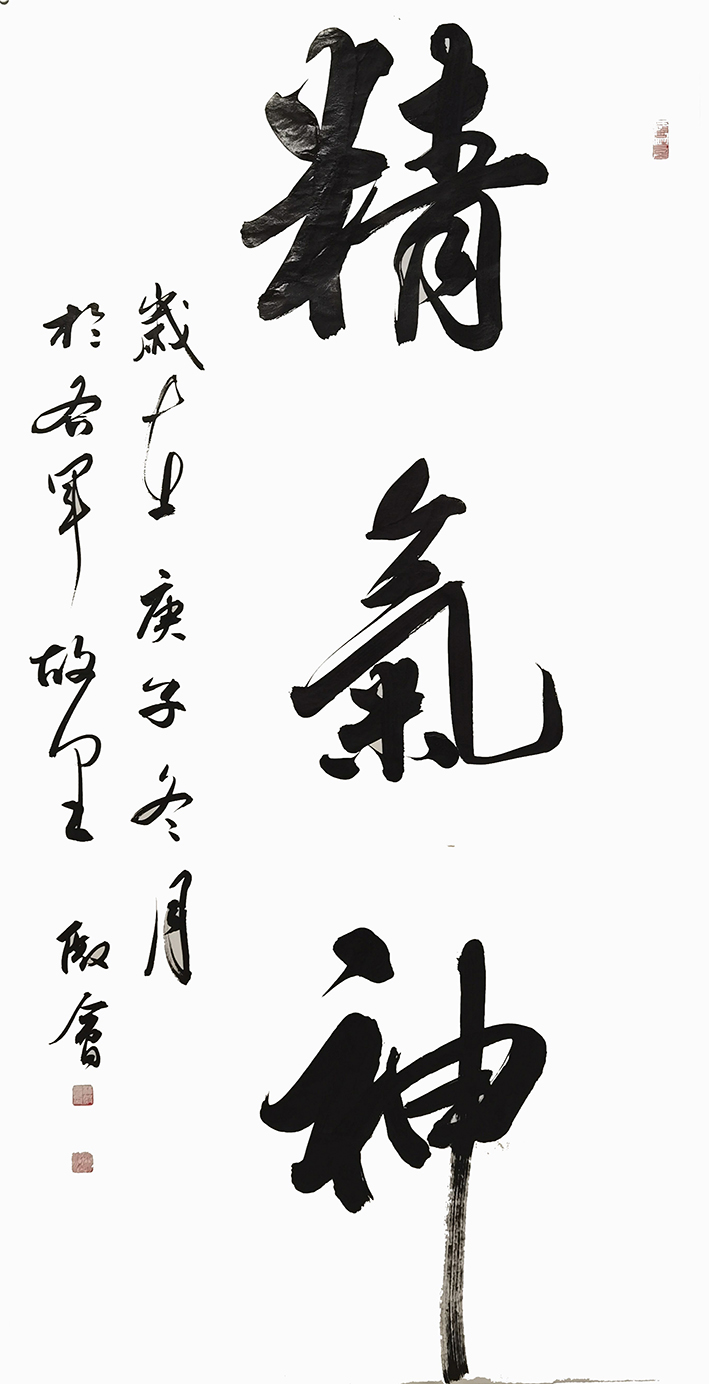 精氣神
歲在庚子冬月
於右軍故里 會